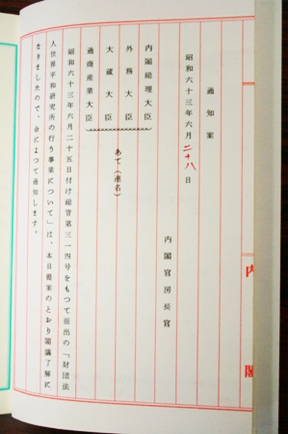 通知案
昭和六十三年六月二十八日
内閣官房長官
内閣総理大臣
外務大臣
大蔵大臣
通商産業大臣
あて(連名)
昭和六十三年六月二十五日付け総官第三一四号をもつて提出の「財団法
人世界平和研究所の行う事業について」は、本日提案のとおり閣議了解に
なりましたので、命によつて通知します。
内閣